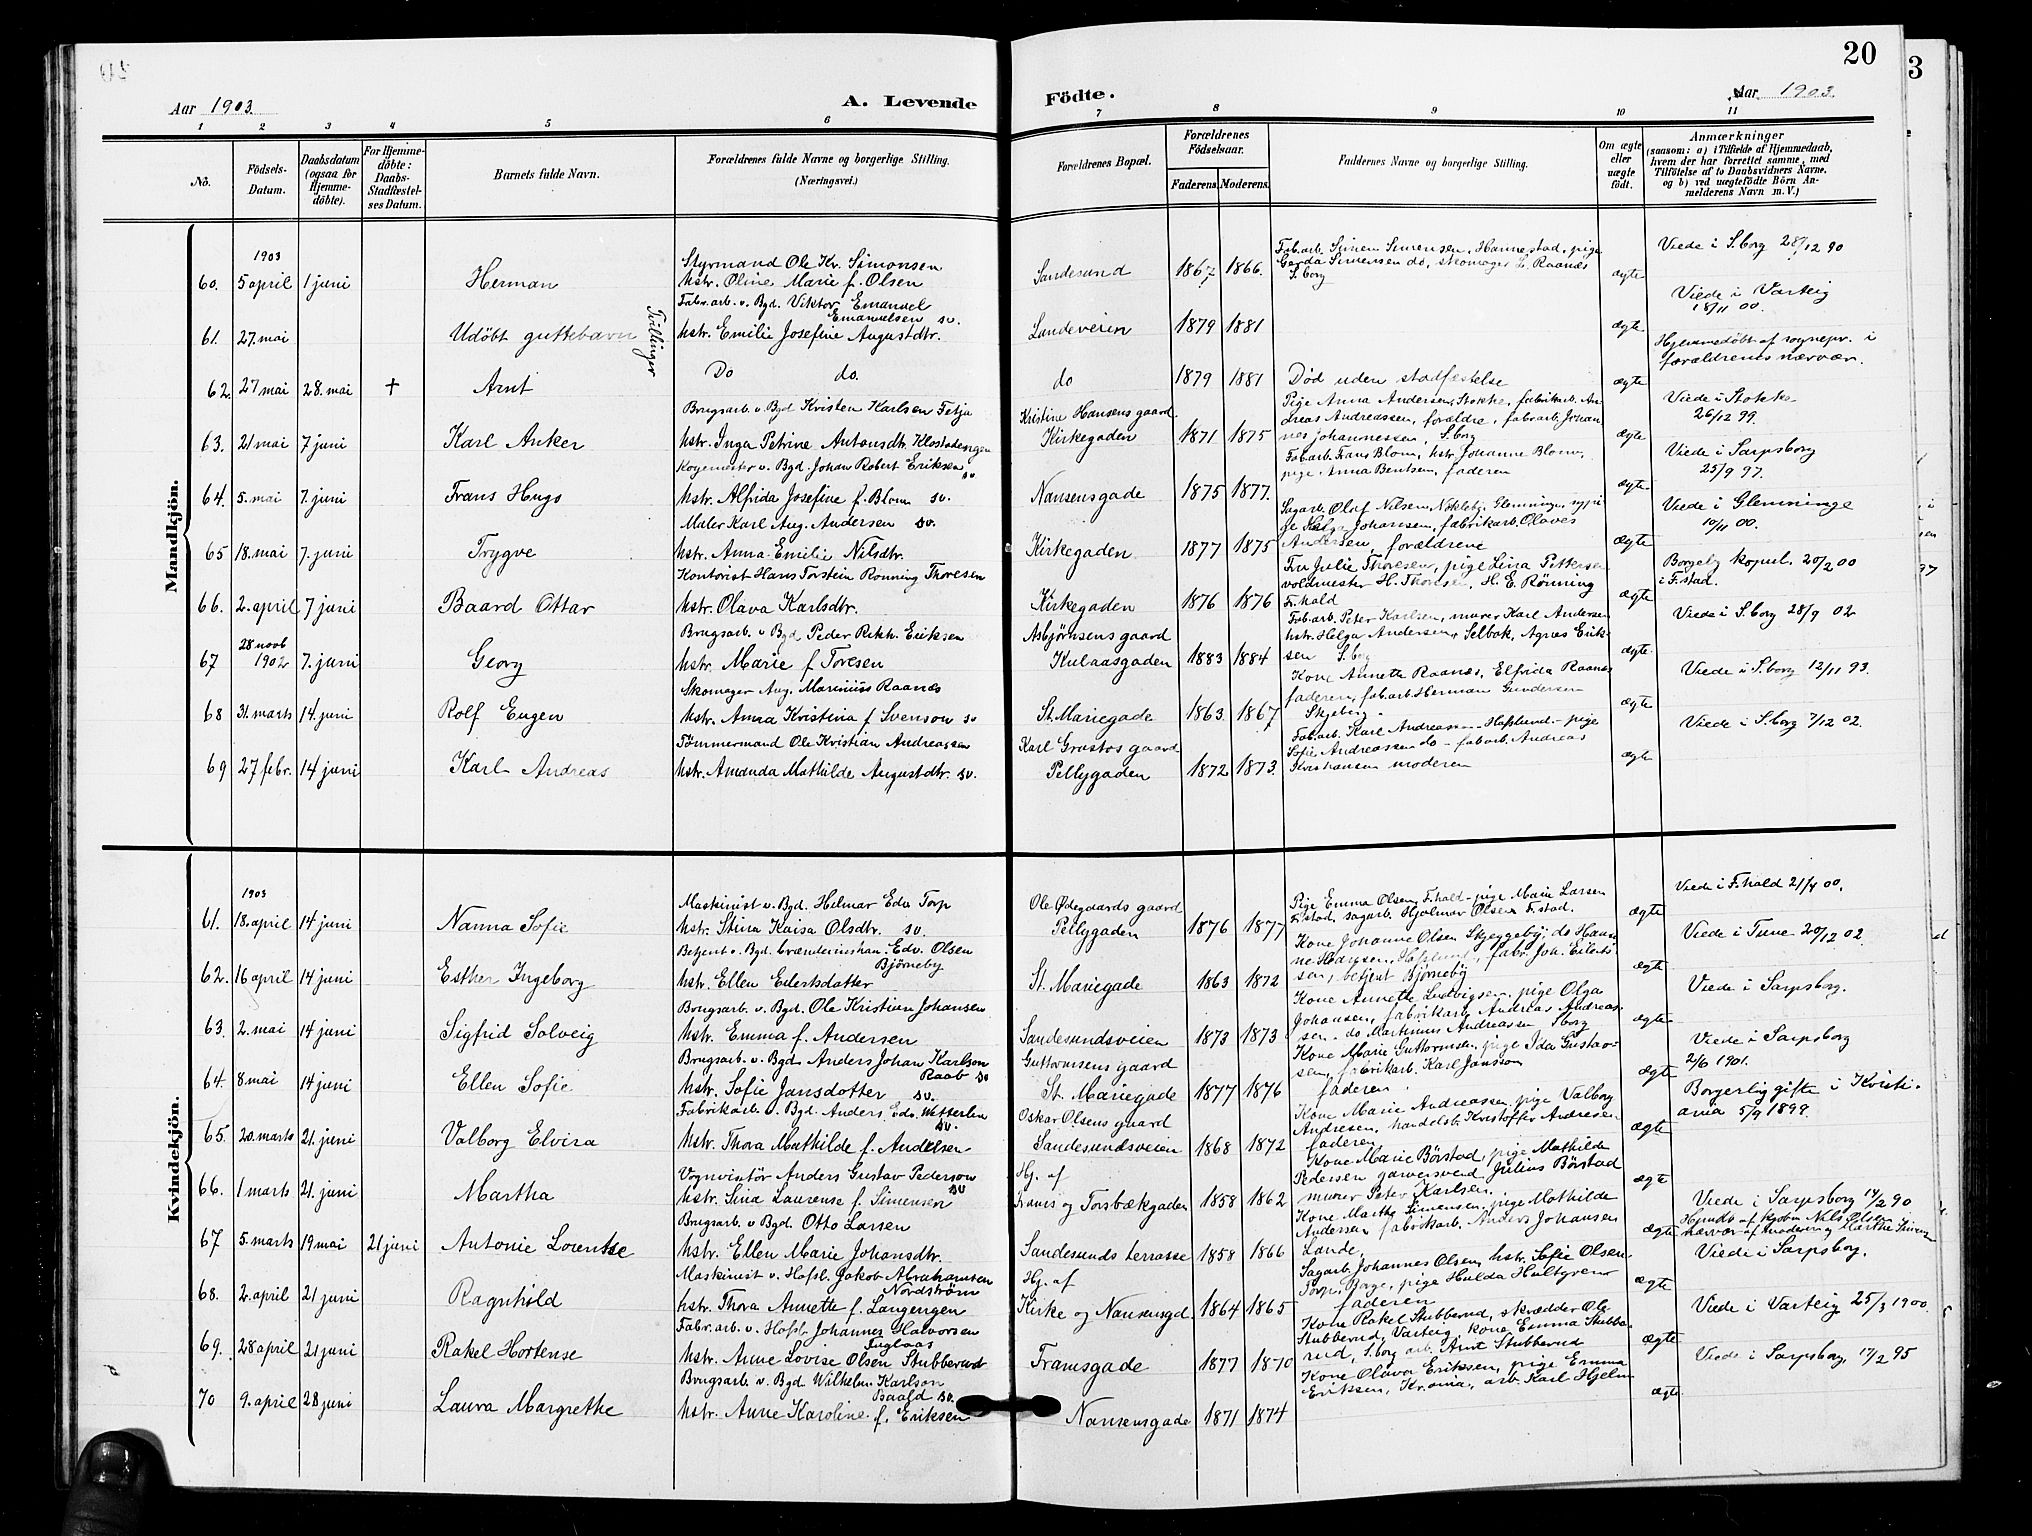 20
Aar 1903.
A. Levende Födte.
Aar 1903.
1 2 3 4 5 6 7 8 9 10 11
No.
Födsels-Datum.
Daabsdatum (ogsaa for Hjemme-döbte).
For Hjemme-döbte: Daabs-Stadfestel-ses Datum.
Barnets fulde Navn.
Forældrenes fulde Navne og borgerlige Stilling.
(Næringsvei.)
Forældrenes Bopæl.
Forældrenes Födselsaar.
Faderens. Moderens.
Faddernes Navne og borgerlige Stilling.
Om ægte eller uægte födt.
Anmærkninger
(saasom: a) i Tilfælde af Hjemmedaab, hvem der har forrettet samme, med Tilföielse af to Daabsvidners Navne, og b) ved uægtefödte Börn Anmelderens Navn m. V.)
Mandkjön.
1903
60. 5 april 1 juni Herman
Styrmand Ole Kr. Simonsen
hstr. Oline Marie f. Olsen
Sandesund 1867 1866.
Fabarb. Simen Simensen, Hannestad, pige
Gerda Simensen do, skomager L. Raanæs
S.borg
ægte
Viede i S.borg 28/12 90
61. 27. mai Udöbt guttebarn
Tvillinger
Fabr.arb. v. Bgd. Viktor Emanuel
Emanuelsen sv.
hstr. Emilie Josefine Augustdtr.
Landeveien 1879 1881
ægte
Viede i Varteig
18/11 00.
62. 27 mai 28. mai † Arnt
Do do.
do 1879 1881
Död uden stadfæstelse
ægte
Hjemmedöbt af sognepr. i
forældrenes nærvær.
63. 21 mai 7 juni Karl Anker
Brugsarb. v. Bgd Kristen Karlsen Fetja
hstr. Inga Petrine Antonsdtr. Klostadengen
Kristine Hansens gaard
Kirkegaden 1871 1875
Pige Anna Andersen, Stokke, fabrikarb. An-
dreas Andreassen, forældre, fabarb. Johan-
nes Johannessen, S.borg
ægte
Viede i Stokke
26/12 99.
64. 5. mai 7. juni Frans Hugo
Kogemester v. Bgd. Johan Robert Eriksen
sv
hstr. Alfrida Josefine f. Blom sv.
Nansensgade 1875 1877.
Fabarb. Frans Blom, hstr Johanne Blom,
pige Anna Bentsen, faderen
ægte.
Viede i Sarpsborg
25/9 97.
65 18. mai 7. juni Trygve
Maler Karl Aug. Andersen sv.
hstr. Anna Emilie Nilsdtr.
Kirkegaden 1877 1875
Sagarb. Olaf Nilsen, Nokleby, Glemminge, pi-
ge Helga Johansen, fabrikarb. Olaves
Andersen, forældrene
ægte
Viede i Glemminge
10/11 00.
66. 2. april 7 juni Baard Ottar
Kontorist Hans Torstein Ronning Thoresen
hstr. Olava Karlsdtr.
Kirkegaden 1876 1876
Fru Julie Thoresen, pige Lina Pettersen
voldmester H. Thoresen, H. E. Rönning
Fr.hald
ægte
Borgely kopul. 20/2 00
i F.stad.
28 novb
67 1902 7. juni Georg
Brugsarb. v Bgd Peder Rikh. Eriksen
hstr. Marie f. Toresen
Asbjörnsens gaard
Kulaasgaden 1883 1884
Fabarb. Peter Karlsen, murer Karl Andersen
hstr. Helga Andersen, Selbak, Agnes Erik-
sen S.borg
ægte
Viede i S.borg 28/9 02
68 31. marts 14. juni Rolf Eugen
Skomager Aug. Marinius Raanæs
hstr. Anna Kristina f. Svenson sv
St. Mariegade 1863. 1867
Kone Annette Raanæs, Elfrida Raanæs
faderen, fabarb. Herman Gundersen
Skjeberg
ægte
Viede i S.borg 12/11 93.
69 27 febr. 14 juni Karl Andreas
Tömmermand Ole Kristian Andreassen
hstr. Amanda Mathilde Augustdtr. sv.
Karl Grastos gaard
Pellygaden 1872 1873.
Fabarb. Karl Andreassen Hafslund - pige
Sofie Andreassen do - fabarb. Andreas
Kristiansen moderen
ægte
Viede i S.borg 7/12 02.
Kvindekjön.
1903
61. 18. april 14 juni Nanna Sofie
Maskinist v. Bgd. Helmar Edv Torp
hstr. Stina Kaisa Olsdtr. sv.
Ole Ødegaards gaard
Pellygaden 1876 1877
Pige Emma Olsen, F.hald - pige Marie Larsen
Fr.stad, sagarb. Hjalmar Olsen F.stad.
ægte
Viede i F.hald 21/4 00.
62. 16 april 14 juni Esther Ingeborg
Betjent v. Bgd. brænderinskan. Edv. Olsen
Björneby
hstr. Ellen Eilertsdatter
St. Mariegade 1863 1872
Kone Johanne Olsen Skjeggeby, do Hans-
ne Hansen, Hafslund, fabr. Joh. Eilert-
sen, betjent Bjørneby
ægte
Viede i Tune 20/12 02.
63. 2. mai 14 juni Sigfrid Solveig
Brugsarb v. Bgd. Ole Kristian Johansen
hstr. Emma f. Andersen
Sandesundsveien 1873 1873
Kone Annette Ludvigsen, pige Olga
Johansen, fabrikarb. Andreas Andreas-
sen, do Martinius Andreassen S.borg
ægte
Viede i Sarpsborg.
64 8 mai 14 juni Ellen Sofie
Brugsarb. v. Bgd Anders Johan Karlson
Raab sv
hstr. Sofie Jansdotter sv.
Guttormsens gaard
St. Mariegade 1877 1876
Kone Marie Guttormsen, pige Ida Gustav-
sen, fabrikarb. Karl Jansson
faderen.
ægte
Viede i Sarpsborg
2/6 1901.
65. 20. marts 21. juni Valborg Elvira
Fabrikarb v. Bgd. Anders Edv. Wetterlin
sv.
hstr. Thora Mathilde f. Andersen
Oskar Olsens gaard
Sandesundsveien 1868 1872
Kone Marie Andreassen, pige Valborg
Andresen, handelsb. Kristoffer Andresen
faderen
ægte
Borgerlig gifte i Kristi-
ania 5/9 1899.
66. 1 marts 21. juni Martha
Vognvintör Anders Gustav Pederson
sv
hstr. Lina Laurense f. Simensen
Hj. af
Frams og Torsbækgaden 1858 1862
Kone Marie Börstad, pige Mathilde
Pedersen garversvend Julius Börstad
murer Peter Karlsen.
ægte
Viede i Sarpsborg 14/2 90
67 5. marts 19 mai 21 juni Antonie Lorentse
Brugsarb. v Bgd. Otto Larsen
hstr. Ellen Marie Johansdtr.
Sandesunds terrasse 1858 1866
Kone Marthe Simensen, pige Mathilde
Andersen fabrikarb. Anders Johansen
Lande.
ægte
Hjmdb af kjobm Nils Olsen
nærvær af moderen og Marthe Simens
Viede i Sarpsborg.
68. 2. april 21 juni Ragnhild
Maskinist v. Hafsl. Jakob Abrahamsen
Nordström
hstr. Thora Annette f. Langengen
Hj. af
Kirke og Nansensgd. 1864 1865
Sagarb. Johannes Olsen, hstr. Sofie Olsen
Torp, Borge, pige Hulda Hultgren
faderen
ægte
69. 28 april 21 juni Rakel Hortense
Fabr.arb. v. Hafsl. Johannes Halvorsen
Fuglaas
hstr. Anne Lovise Olsen Stubberud
Framsgade 1877 1870
Kone Rakel Stubberud, skrædder Ole
Stubberud, Varteig, kone Emma Stubbe-
rud, S.borg arb. Arnt Stubberud
ægte
Viede i Varteig 25/3 1900.
70 9. april 28 juni Laura Margrethe
Brugsarb v. Bgd Wilhelm Karlson
Baald sv.
hstr. Anne Karoline f. Eriksen
Nansensgade 1871 1874
Kone Olava Eriksen, pige Emma
Eriksen, Kr.ania, arb. Karl Hjelm
ægte
Viede i Sarpsborg, 17/2 95